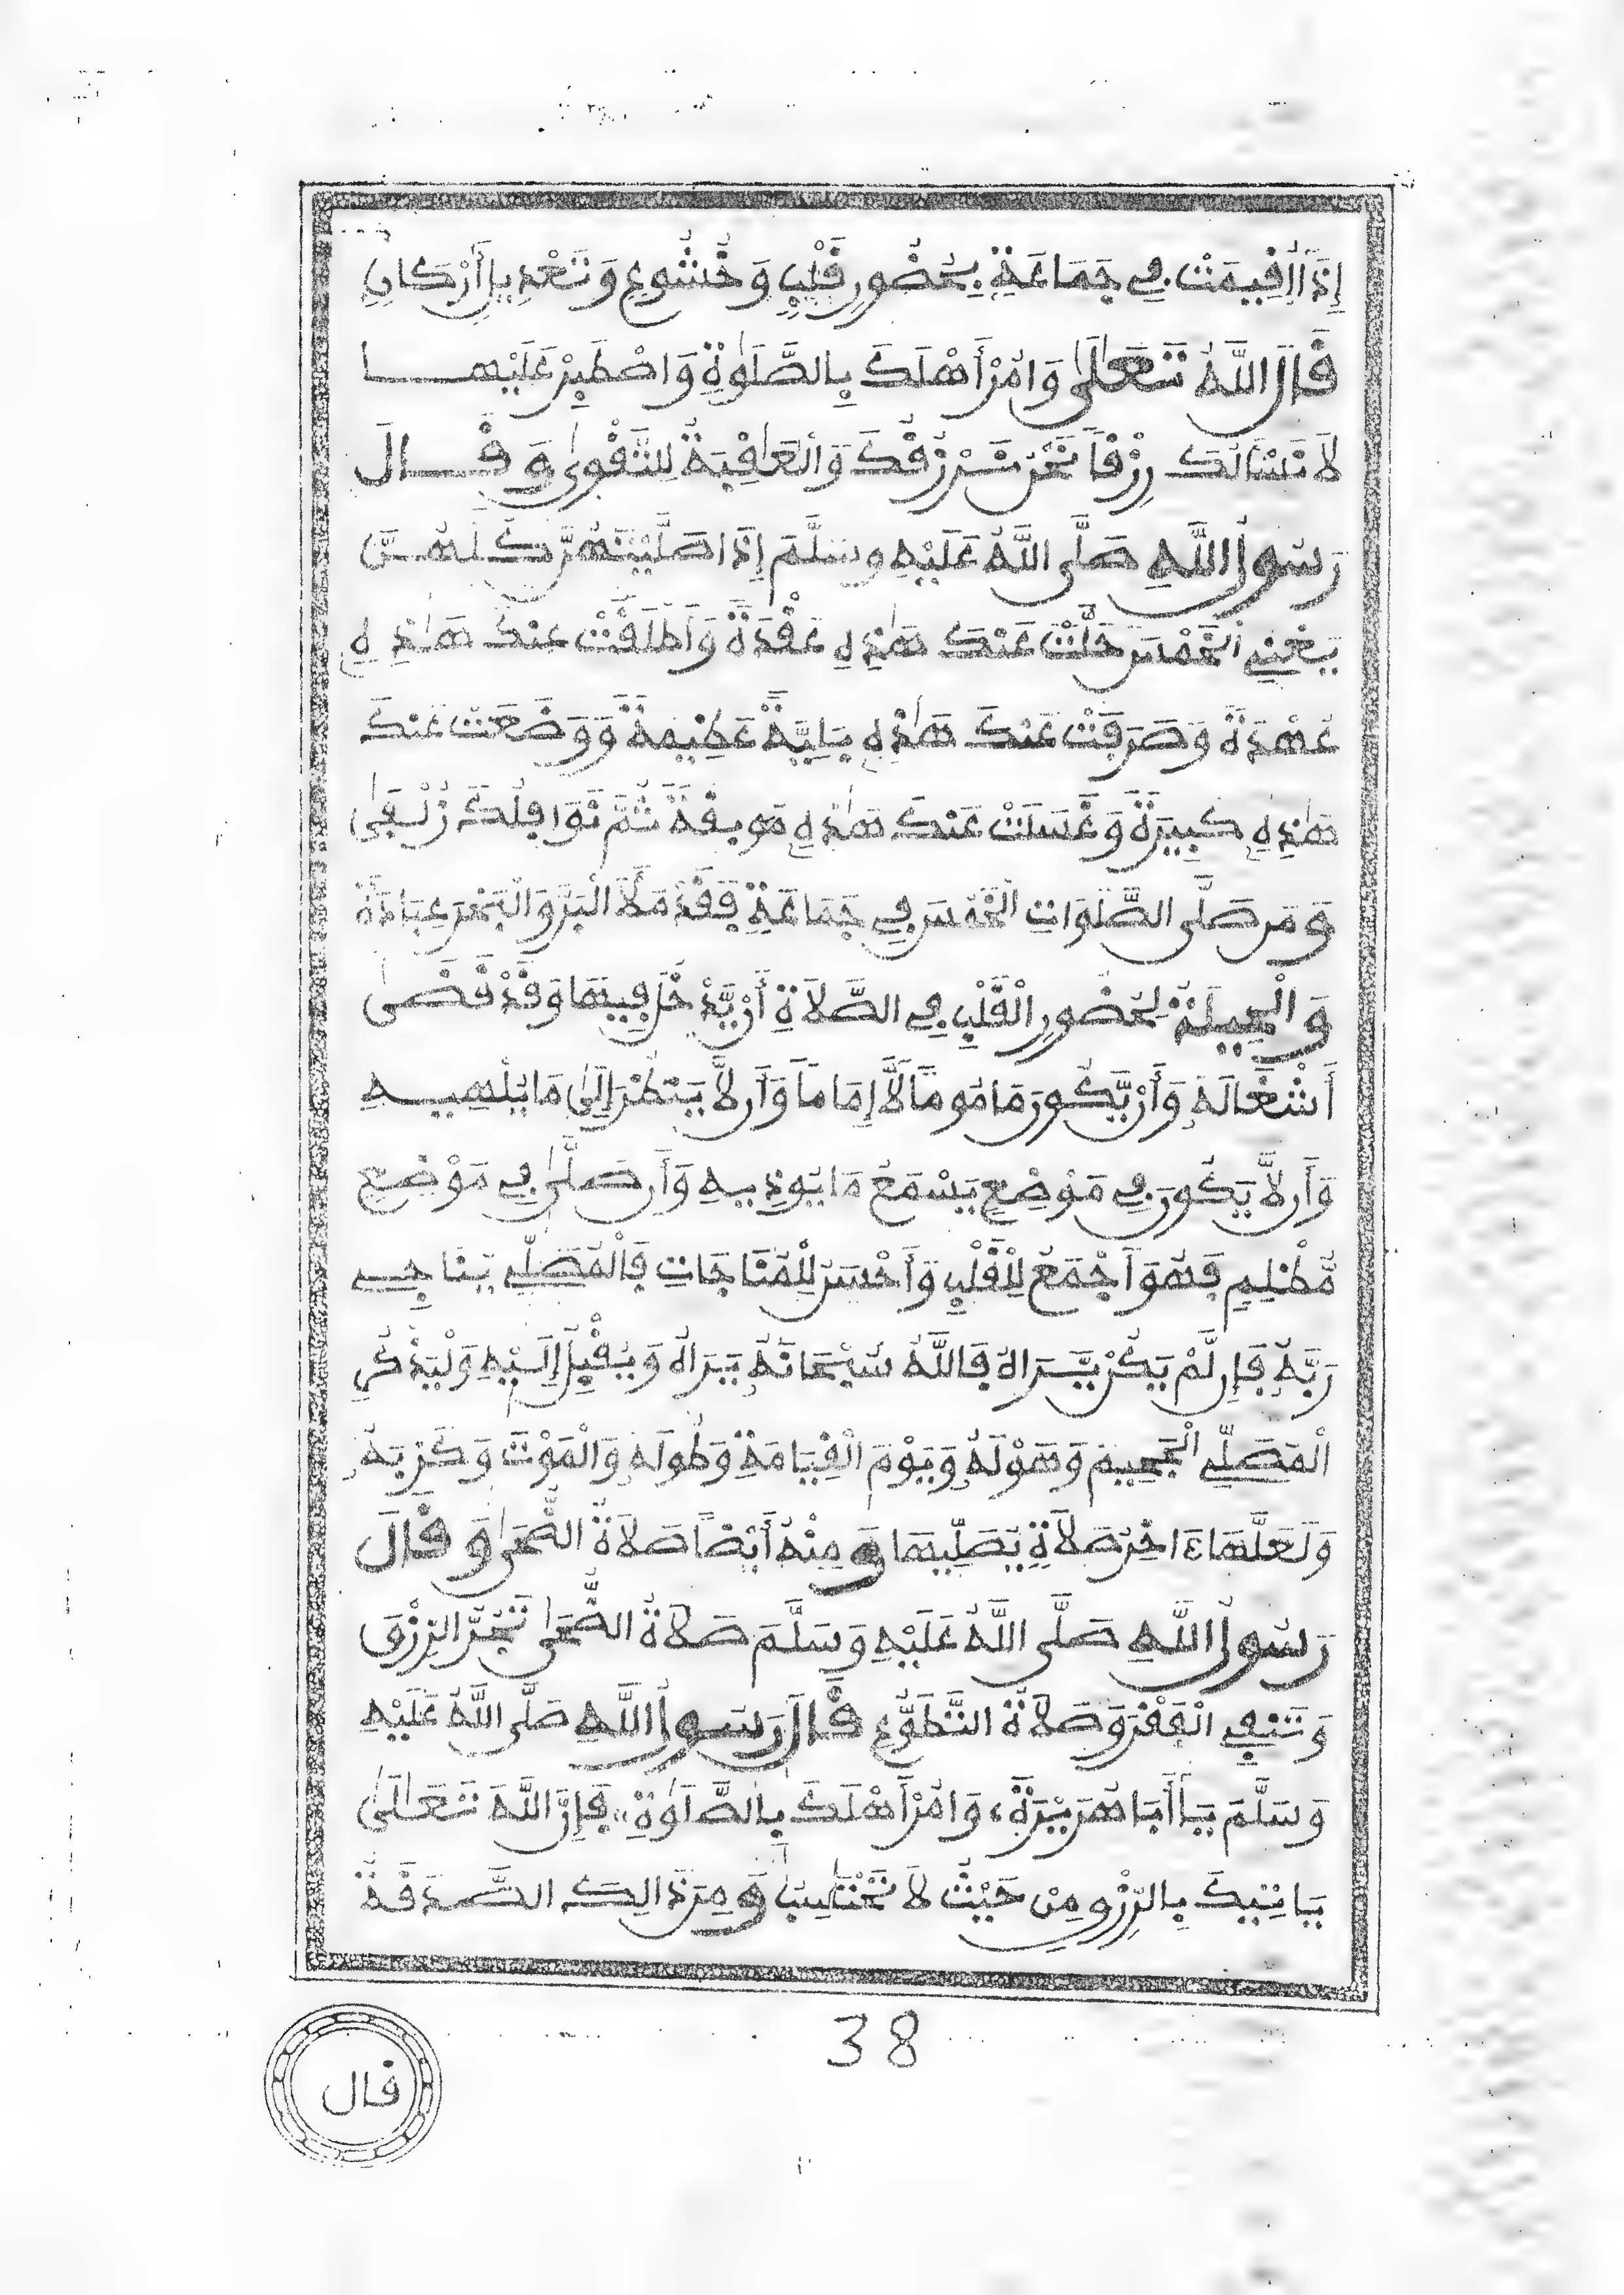 إِذَا أُقِيمَتْ فِي جَمَاعَةٍ بِحُضُورِ قَلْبٍ وَخُشُوعٍ وَتَعْدِيلِ أَرْكَانٍ
قَالَ اللَّهُ تَعَالَىٰ وَامُرْ أَهْلَكَ بِالصَّلَوٰةِ وَاصْطَبِرْ عَلَيْهَا
لَا نَسْـَٔلُكَ رِزْقاً نَّحْنُ نَرْزُقُكَ وَالْعَٰقِبَةُ لِلتَّقْوَىٰ وَقَالَ
رَسُولُ اللَّهِ صَلَّى اللَّهُ عَلَيْهِ وَسَلَّمَ إِذَا صَلَّيْتَهُنَّ كُلَّهُنَّ
يَعْنِي الْخَمْسَ حَلَّتْ عَنْكَ هَٰذِهِ عُقْدَةً وَأَطْلَقَتْ عَنْكَ هَٰذِهِ
عُهْدَةً وَصَرَفَتْ عَنْكَ هَٰذِهِ بَلِيَّةً عَظِيمَةً وَوَضَعَتْ عَنْكَ
هَٰذِهِ كَبِيرَةً وَغَسَلَتْ عَنْكَ هَٰذِهِ مُوبِقَةً ثُمَّ نَوَافِلُكَ زُلْفَىٰ
وَمَن صَلَّى الصَّلَوَاتِ الْخَمْسَ فِي جَمَاعَةٍ فَقَدْ مَلَأَ الْبَرَّ وَالْبَحْرَ عِبَادَةً
وَالْحِيلَةُ لِحُضُورِ الْقَلْبِ فِي الصَّلَاةِ أَنْ يَّدْخُلَ فِيهَا وَقَدْ قَضَىٰ
أَشْغَالَهُ وَأَنْ يَّكُونَ مَامُوماً لَّا إِمَاماً وَأَن لَّا يَنْظُرَ إِلَىٰ مَا يُلْهِيهِ
وَأَن لَّا يَكُونَ فِي مَوْضِعٍ يَسْمَعُ مَا يُوذِيهِ وَأَن صَلَّىٰ فِي مَوْضِعٍ
مُّظْلِمٍ فَهُوَ أَجْمَعُ لِلْقَلْبِ وَأَحْسَنُ لِلْمُنَاجَاتِ فَالْمُصَلِّي يُنَاجِي
رَبَّهُ فَإِن لَّمْ يَكُنْ يَّرَاهُ فَاللَّهُ سُبْحَانَهُ يَرَاهُ وَيُقْبِلُ إِلَيْهِ وَلْيَذْكُرِ
الْمُصَلِّي الْجَحِيمَ وَهَوْلَهُ وَيَوْمَ الْقِيَامَةِ وَطُولَهُ وَالْمَوْتَ وَكَرْبَهُ
وَلَعَلَّهَا ءَاخِرُ صَلَاةٍ يُصَلِّيهَا وَمِنْهُ أَيْضاً صَلَاةُ الضُّحَىٰ وَقَالَ
رَسُولُ اللَّهِ صَلَّى اللَّهُ عَلَيْهِ وَسَلَّمَ صَلَاةُ الضُّحَىٰ تَجُرُّ الرِّزْقَ
وَتَنْفِي الْفَقْرَ وَصَلَاةُ التَّطَوُّعِ قَالَ رَسُولُ اللَّهِ صَلَّى اللَّهُ عَلَيْهِ
وَسَلَّمَ يَا أَبَا هُرَيْرَةَ، وَامُرْ أَهْلَكَ بِالصَّلَوٰةِ،، فَإِنَّ اللَّهَ تَعَالَىٰ
يَاتِيكَ بِالرِّزْقِ مِنْ حَيْثُ لَا تَحْتَسِبُ وَمِن ذَالِكَ الصَّدَقَةُ
38
قال